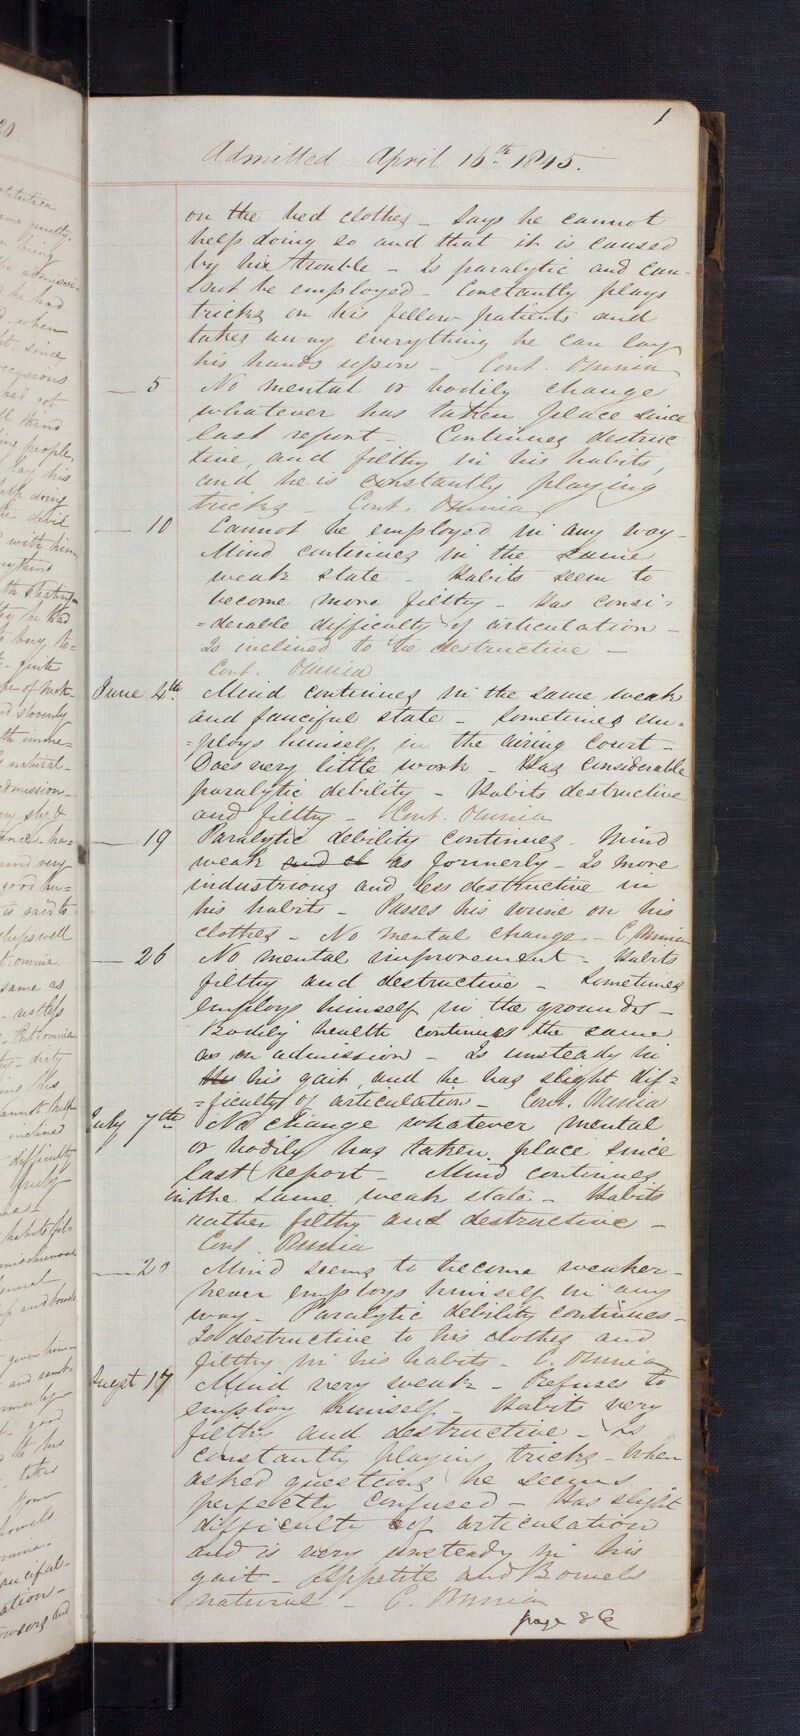 1
Admitted April 16th 1845.
on the bed clothes - Says he cannot
help doing so and that it is caused
by his trouble - Is paralytic and can-
not be employed - Constantly plays
tricks on his fellow patients and
takes away everything he can lay
his hands upon - Cont. Omnia
— 5 No mental or bodily change
whatever has taken place since
last report - Continues destruc
tive, and filthy in his habits,
and he is constantly playing
tricks - Cont. Omnia
— 10 Cannot be employed in any way -
Mind continues in the same
weak state - Habits seem to
become more filthy - Has consi=
=derable difficulty of articulation -
Is inclined to be destructive -
Cont. Omnia
June 4th. Mind continues in the same weak
and fanciful state - Sometimes em=
=ploys himself in the airing court -
Does very little work - Has considerable
paralytic debility - Habits destructive
and filthy - Cont. Omnia
— 19 Paralytic debility continues - Mind
weak as formerly - Is more
industrious and less destructive in
his habits - Passes his urine on his
clothes - No mental change - C. Omnia
— 26 No mental improvement - Habits
filthy and destructive - Sometimes
employs himself in the grounds -
Bodily health continues the same
as on admission - Is unsteady in
his gait, and he has slight dif=
=ficulty of articulation - Cont. Omnia
July 7th No change whatever mental
or bodily has taken place since
last report - Mind continues
in the same weak state - Habits
rather filthy and destructive -
Cont. Omnia
— 20 Mind seems to become weaker -
never employs himself in any
way - Paralytic debility continues -
Is destructive to his clothes and
filthy in his habits - C. Omnia
Augst 17 Mind very weak - Refuses to
employ himself - Habits very
filthy and destructive - is
constantly playing tricks - When
asked questions he seems
perfectly confused - Has slight
difficulty of articulation
and is very unsteady in his
gait - Appetite and Bowels
natural - C. Omnia
page 86